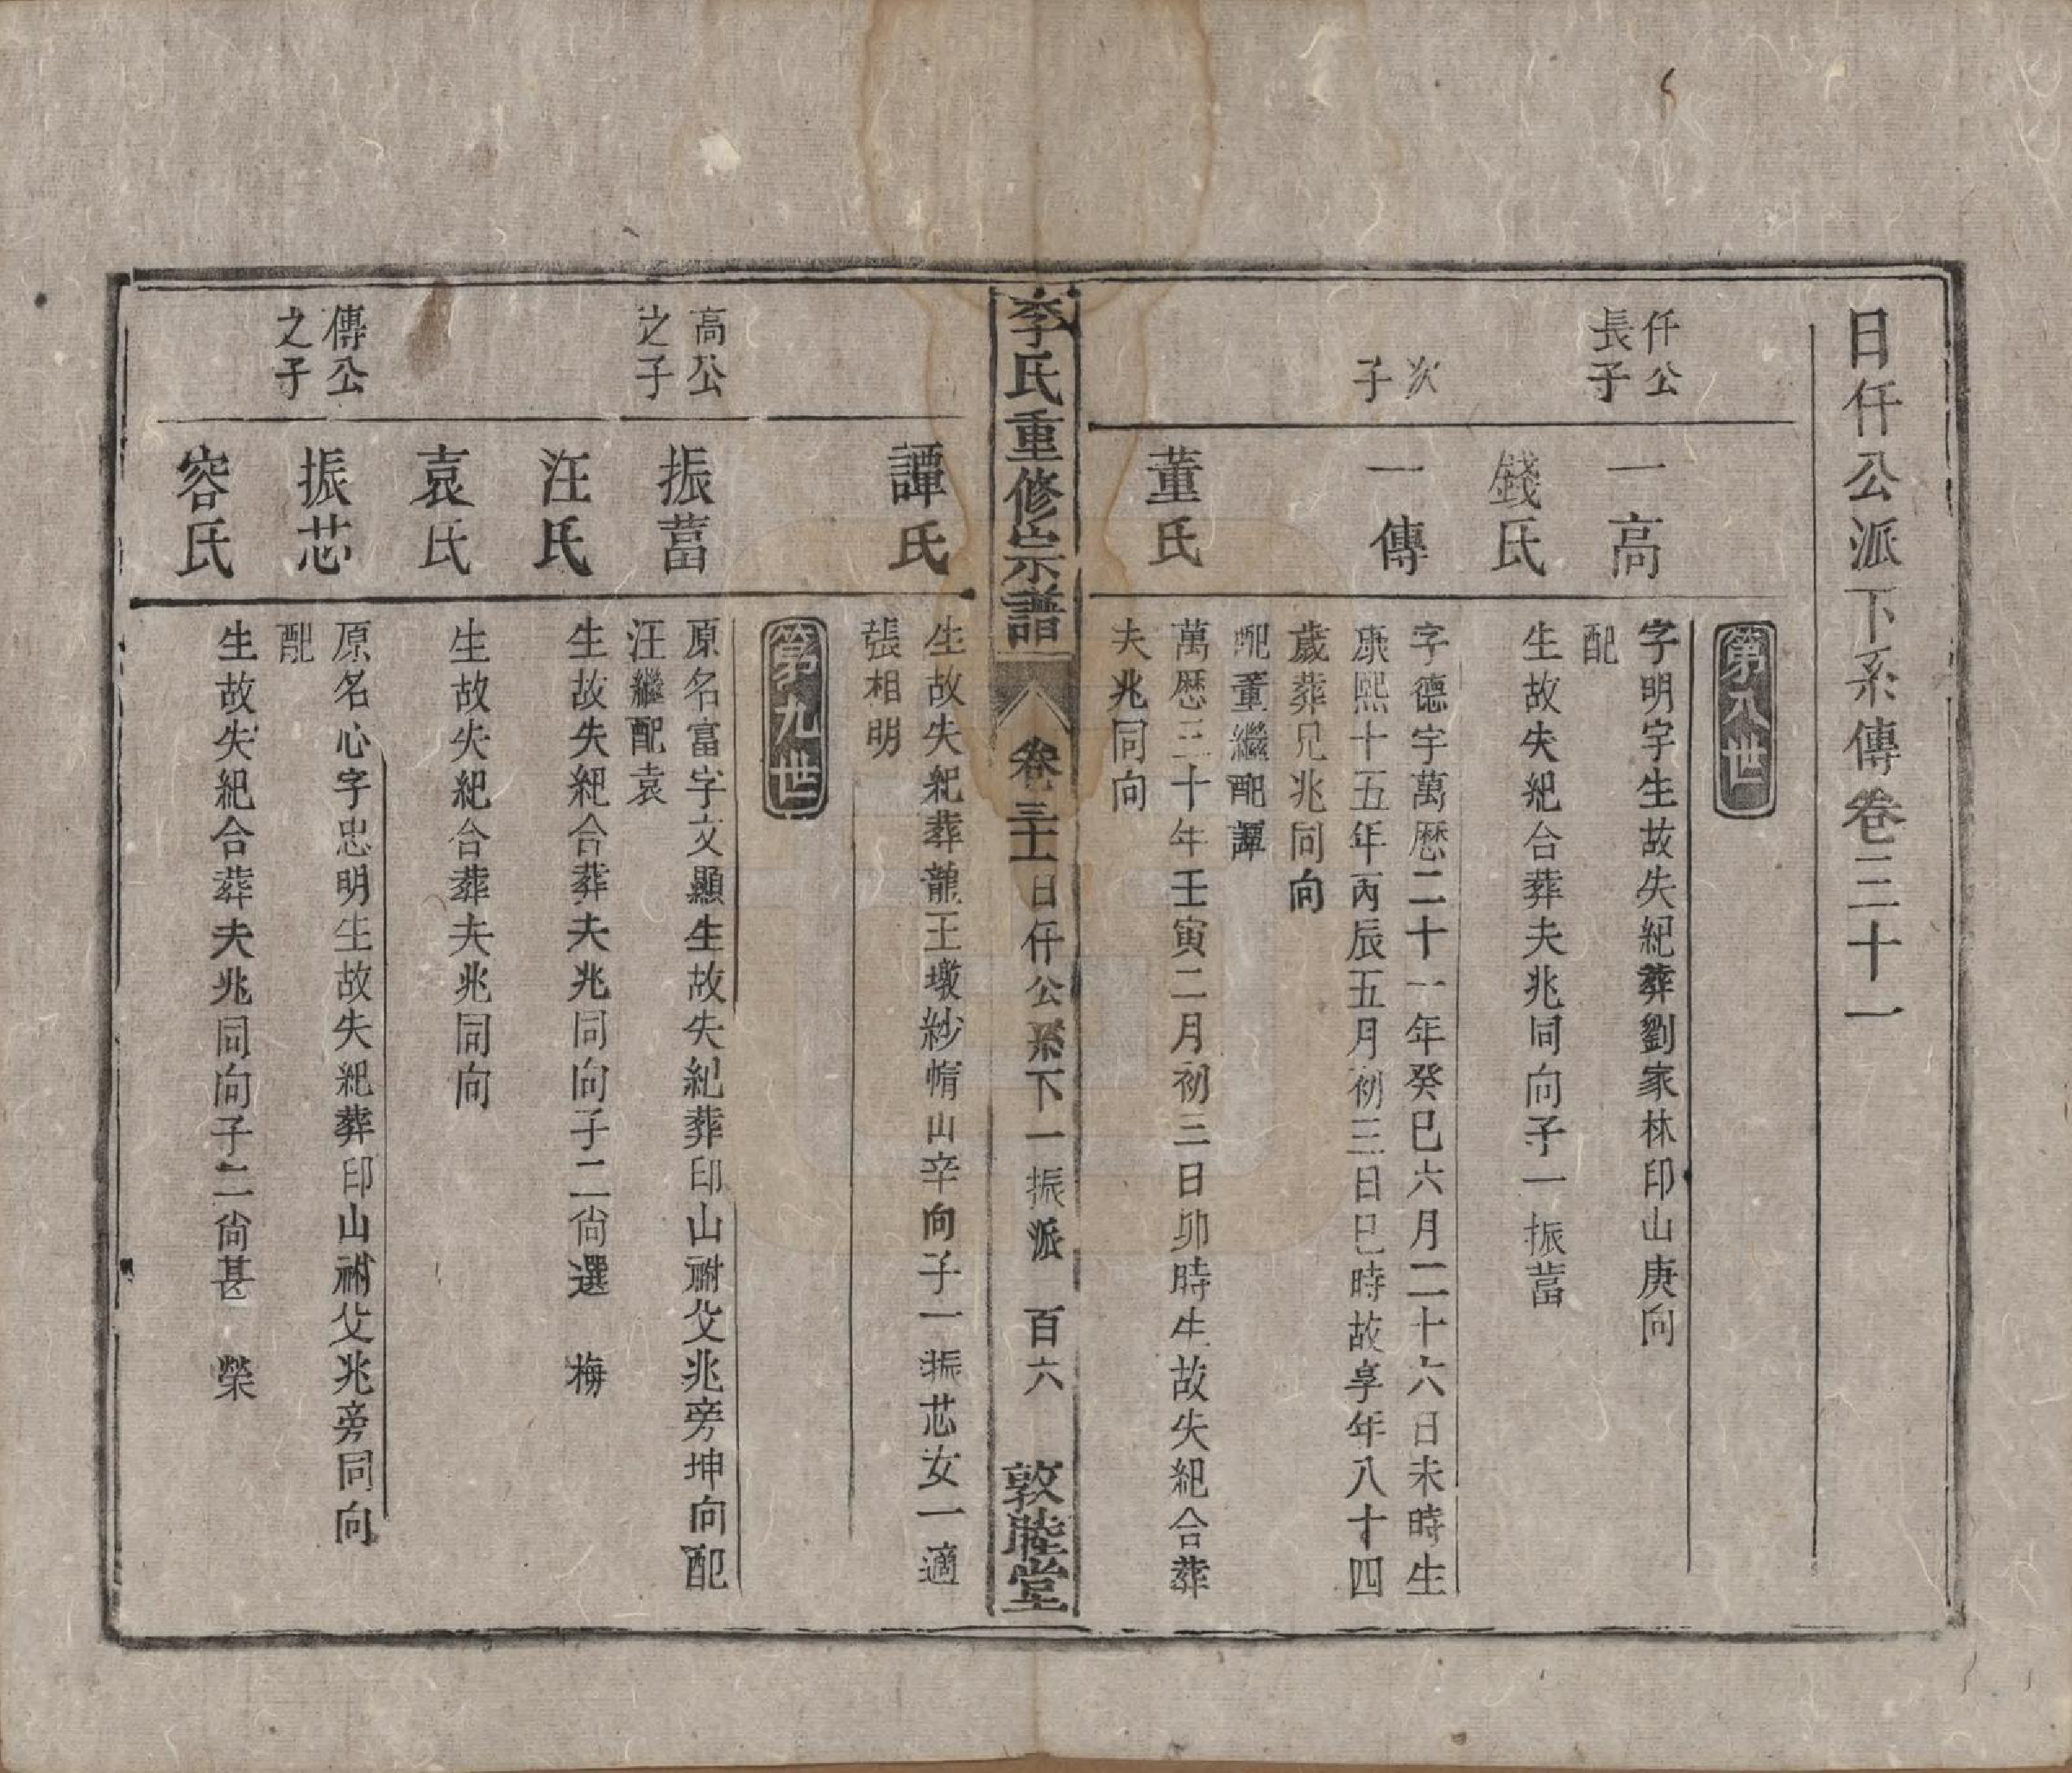 日仟公派下系傳卷三十一
第八世
仟公
長子
一高
字明字生故失紀葬劉家林印山庚向
配
錢氏
生故失紀合葬夫兆同向子一振蓄
次
子
一傳
字德宇萬歷二十一年癸巳六月二十六日未時生
康熙十五年丙辰五月初三日巳時故享年八十四
歲葬兄兆同向
配董繼配譚
董氏
萬歷三十年壬寅二月初三日卯時生故失紀合葬
夫兆同向
李氏重修宗譜
卷三十一日仟公系下一振派
百六
敦睦堂
譚氏
生故失紀葬龍王墩紗帽山辛向子一振芯女一適
張相明
第九世
高公
之子
振蓄
原名富字文顯生故失紀葬印山祔父兆旁坤向配
汪繼配袁
汪氏
生故失紀合葬夫兆同向子二尙選　梅
袁氏
生故失紀合葬夫兆同向
傳公
之子
振芯
原名心字忠明生故失紀葬印山祔父兆旁同向
配
容氏
生故失紀合葬夫兆同向子二尙甚　榮